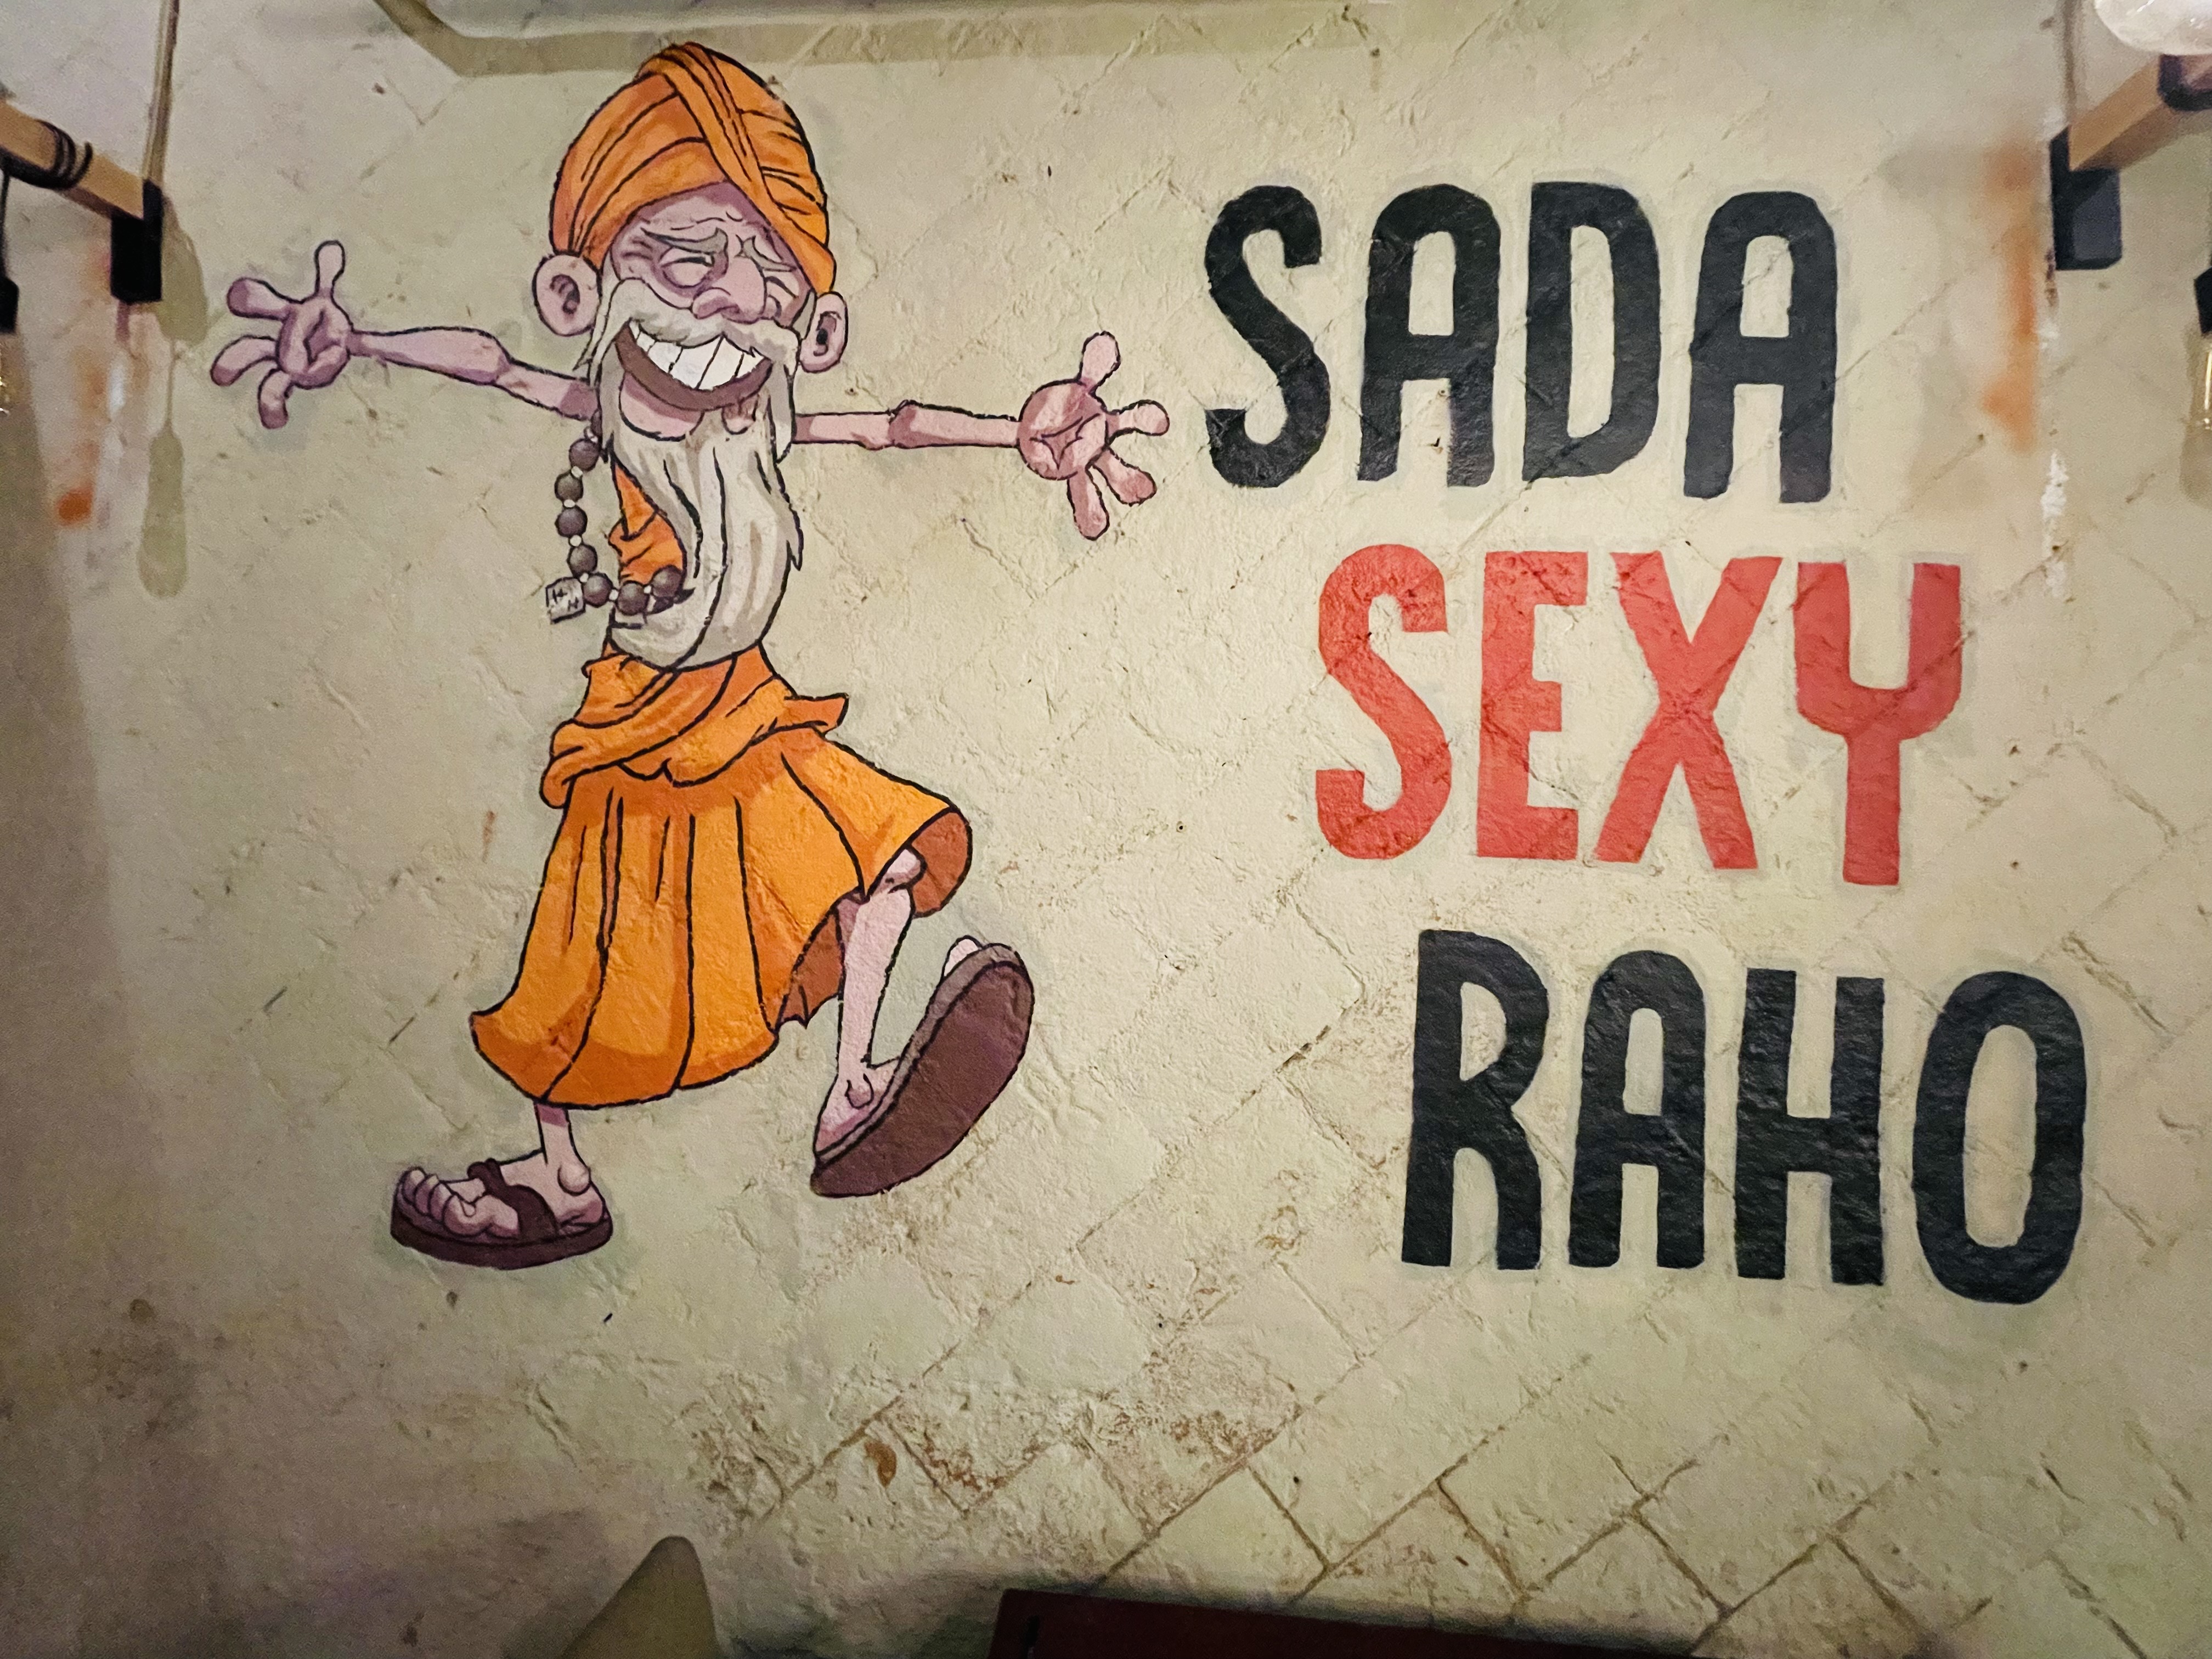 SADA
SEXY
RAHO